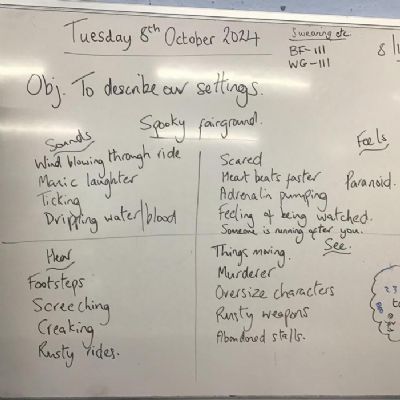 Tuesday 8th October 2024
Swearing etc
BF-III
WG-III
8
Obj. To describe our settings.
Spooky fairground.
Sounds
Wind blowing through ride
Manic laughter
Ticking
Dripping water/blood
Feels
Scared
Heart beats faster
Paranoid.
Adrenalin pumping
Feeling of being watched.
Someone is running after you.
Hear
Footsteps
Screeching
Creaking
Rusty rides.
See.
Things moving.
Murderer
Oversize characters
Rusty weapons
Abandoned stalls.
23